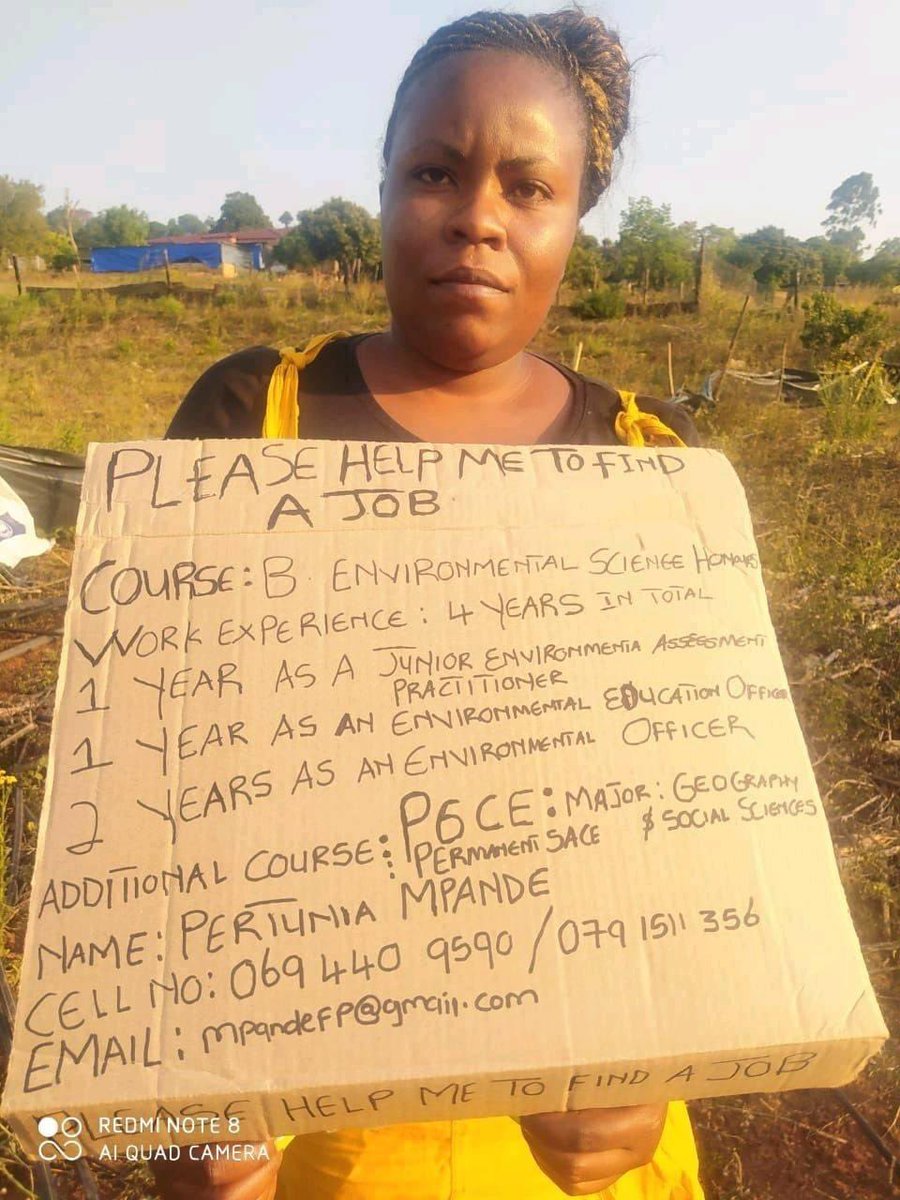 PLEASE HELP ME TO FIND
A JOB
COURSE: B. ENVIRONMENTAL SCIENCE HONOURS
WORK EXPERIENCE: 4 YEARS IN TOTAL
1 YEAR AS A JUNIOR ENVIRONMENTA ASSESSMENT
PRACTITIONER
1 YEAR AS AN ENVIRONMENTAL EDUCATION OFFICER
2 YEARS AS AN ENVIRONMENTAL OFFICER
ADDITIONAL COURSE: PGCE: MAJOR: GEOGRAPHY
PERMANENT SACE & SOCIAL SCIENCES
NAME: PERTUNIA MPANDE
CELL NO: 069 440 9590 / 079 1511 356
EMAIL: mpandeFP@gmail.com
PLEASE HELP ME TO FIND A JOB
REDMI NOTE 8
AI QUAD CAMERA